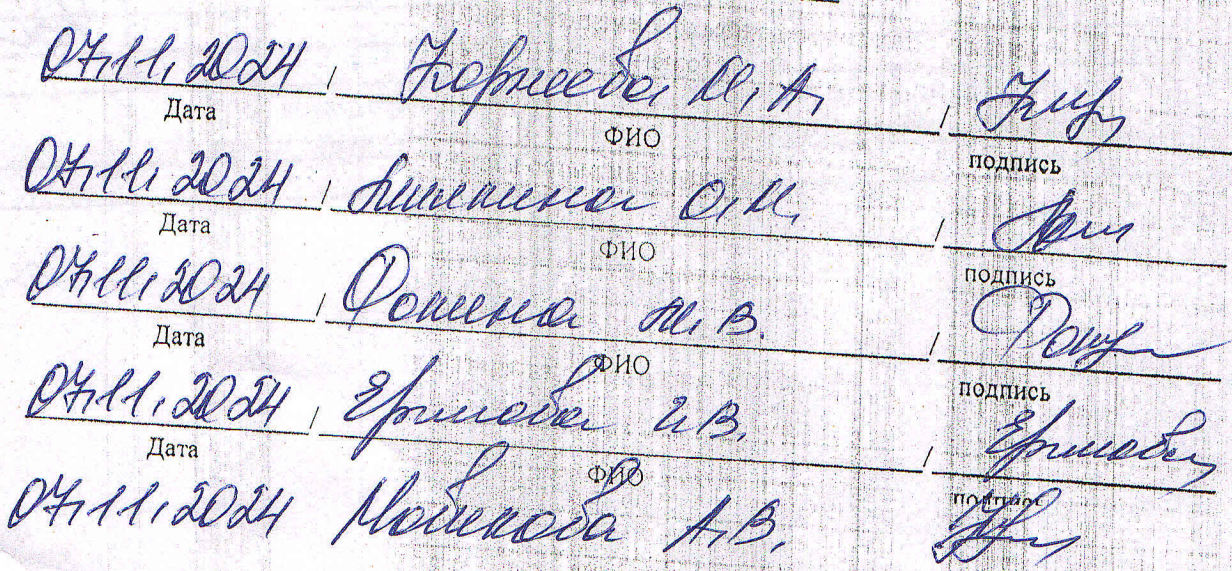 07.11.2024 / Корнеева М.А. / 
Дата ФИО подпись
07.11.2024 / О.М. / 
Дата ФИО подпись
07.11.2024 / Фомина М.В. / 
Дата ФИО подпись
07.11.2024 / Ермова И.В. / Ермова
Дата ФИО подпись
07.11.2024 А.В.